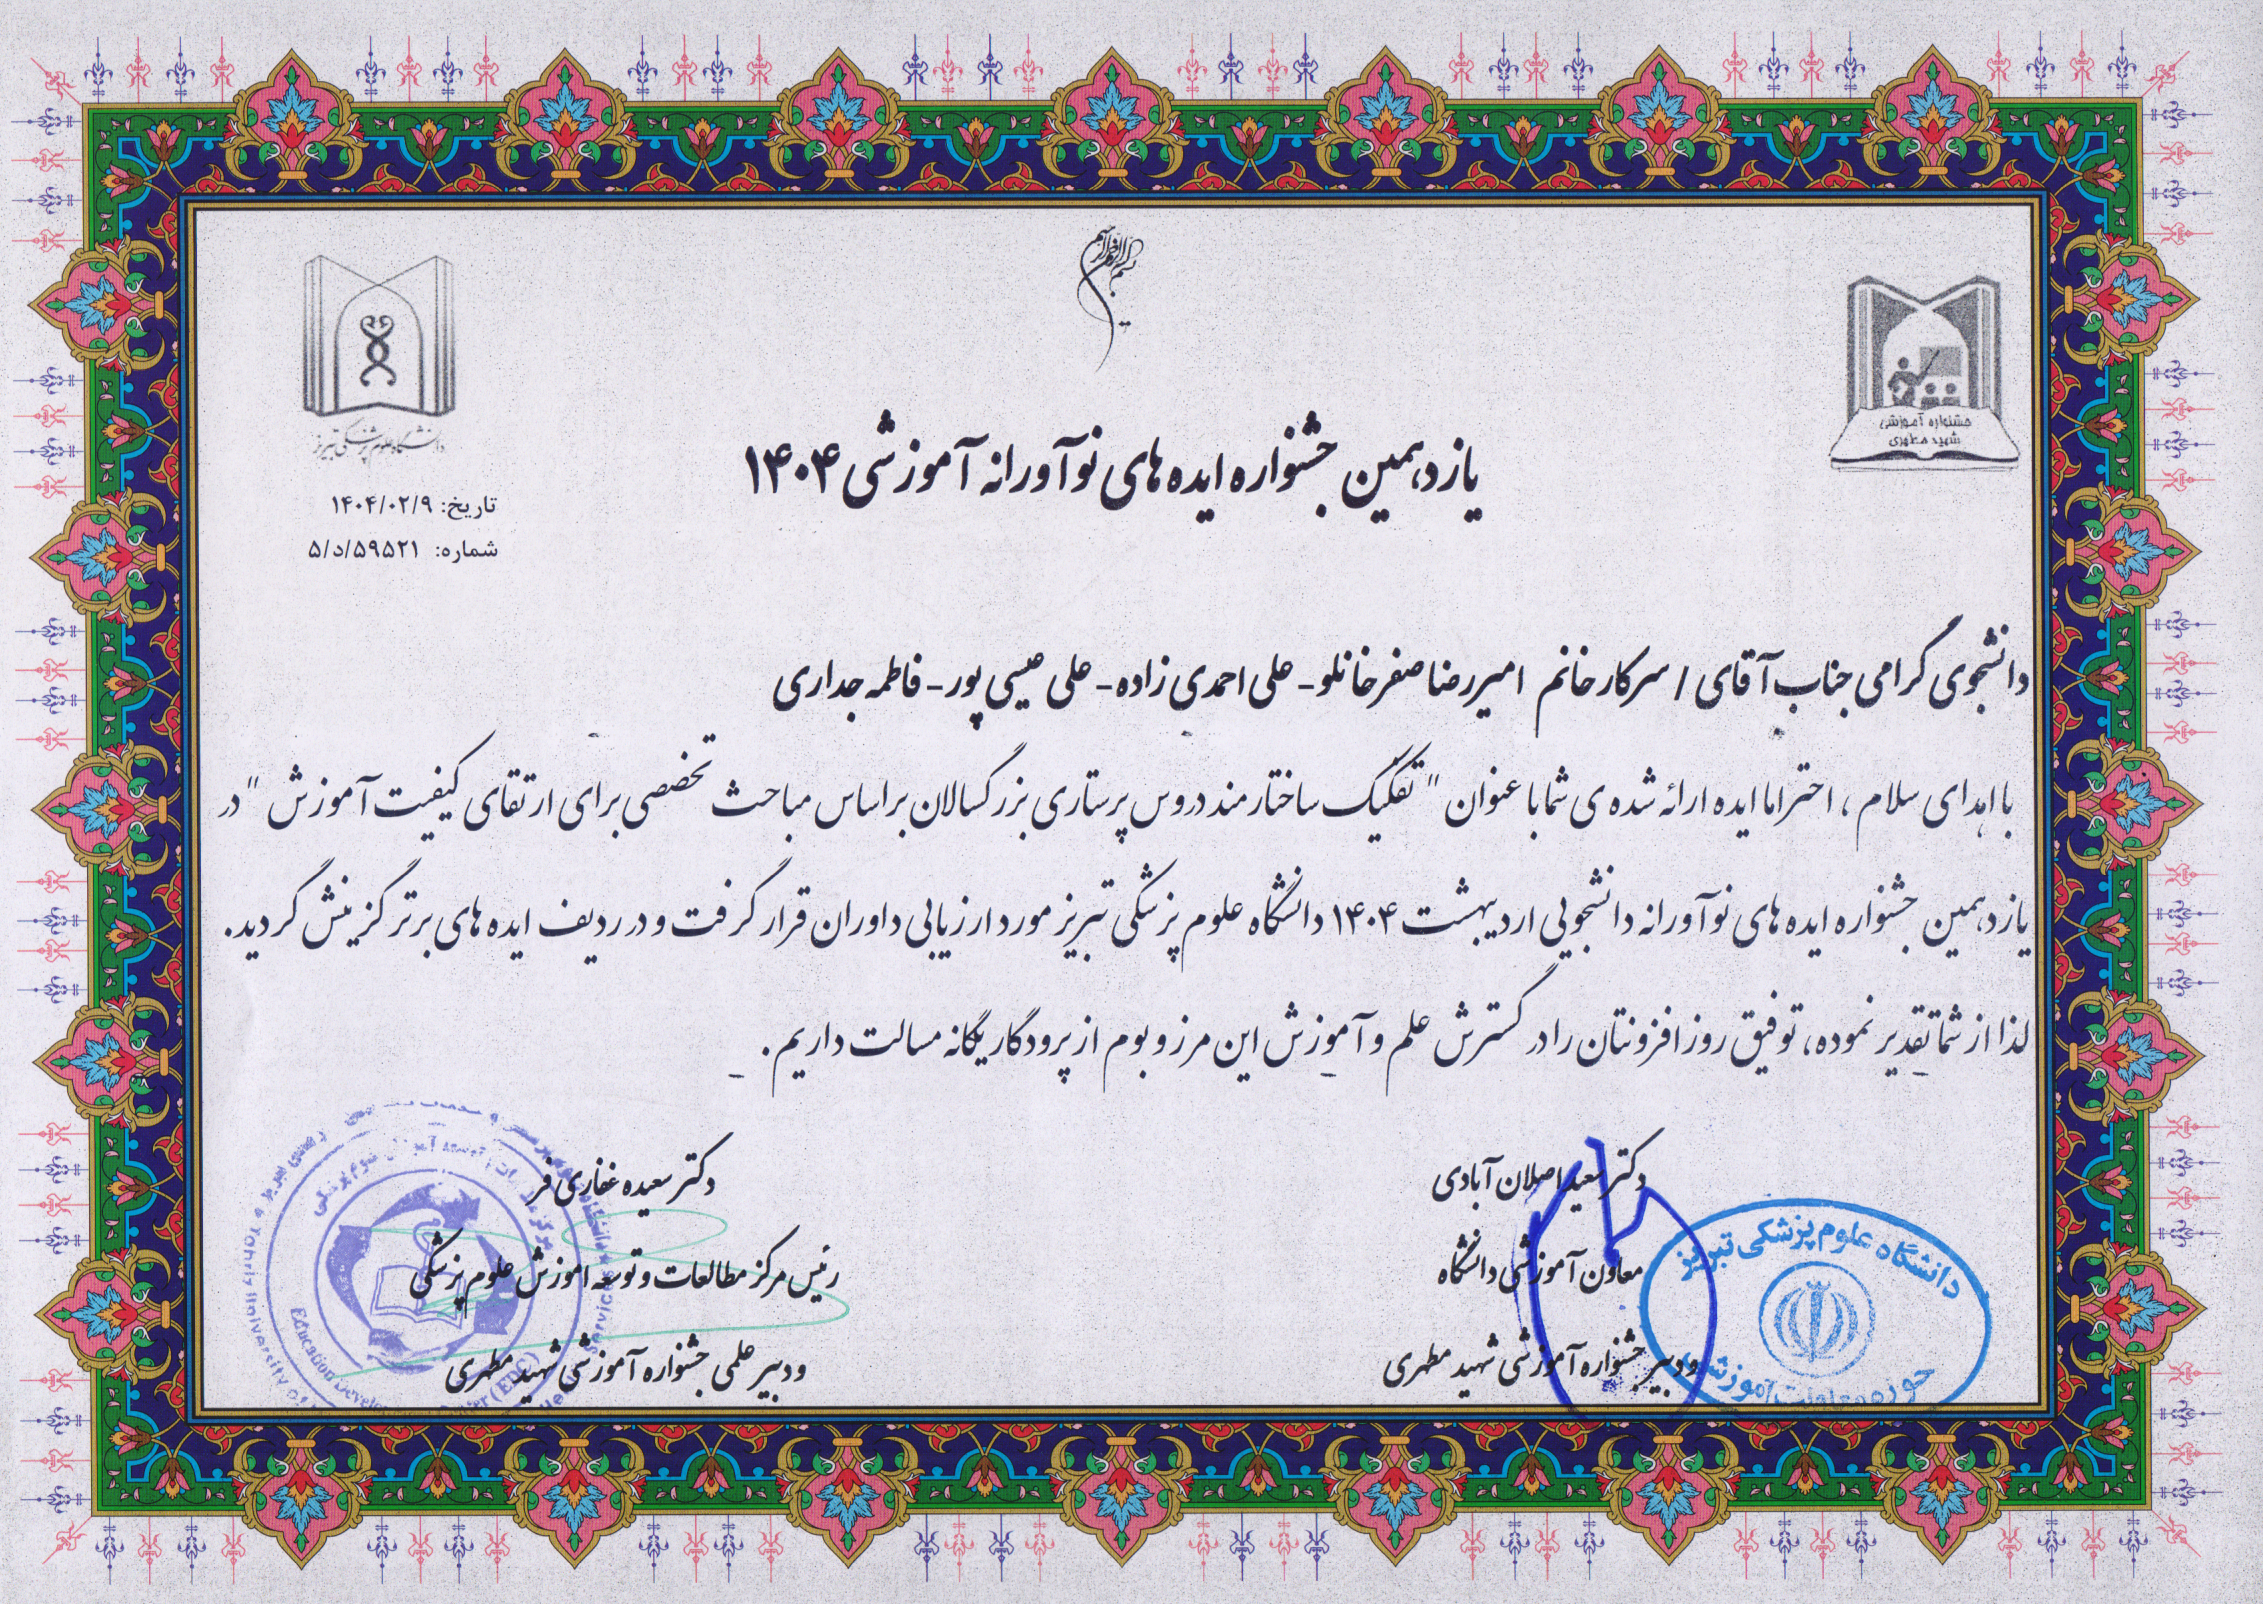 بسم الله الرحمن الرحیم
جشنواره آموزشی
شهید مطهری
دانشگاه علوم پزشکی تبریز
یازدهمین جشنواره ایده های نوآورانه آموزشی ۱۴۰۴
تاریخ: ۱۴۰۴/۰۲/۹
شماره: ۵/د/۵۹۵۲۱
دانشجوی گرامی جناب آقای / سرکار خانم امیررضا صفرخانلو- علی احمدی زاده- علی عیسی پور- فاطمه جداری
با اهدای سلام ، احتراما ایده ارائه شده ی شما با عنوان " تفکیک ساختارمند دروس پرستاری بزرگسالان بر اساس مباحث تخصصی برای ارتقای کیفیت آموزش " در
یازدهمین جشنواره ایده های نوآورانه دانشجویی اردیبهشت ۱۴۰۴ دانشگاه علوم پزشکی تبریز مورد ارزیابی داوران قرار گرفت و در ردیف ایده های برتر گزینش گردید.
لذا از شما تقدیر نموده، توفیق روز افزونتان را در گسترش علم و آموزش این مرز و بوم از پرودگار یگانه مسالت داریم .
دکتر سعید اصلان آبادی
معاون آموزشی دانشگاه
و دبیر جشنواره آموزشی شهید مطهری
دکتر سعیده غفاری فر
رئیس مرکز مطالعات و توسعه اموزش علوم پزشکی
و دبیر علمی جشنواره آموزشی شهید مطهری
دانشگاه علوم پزشکی تبریز
حوزه معاونت آموزشی
Education Development Center (EDC)